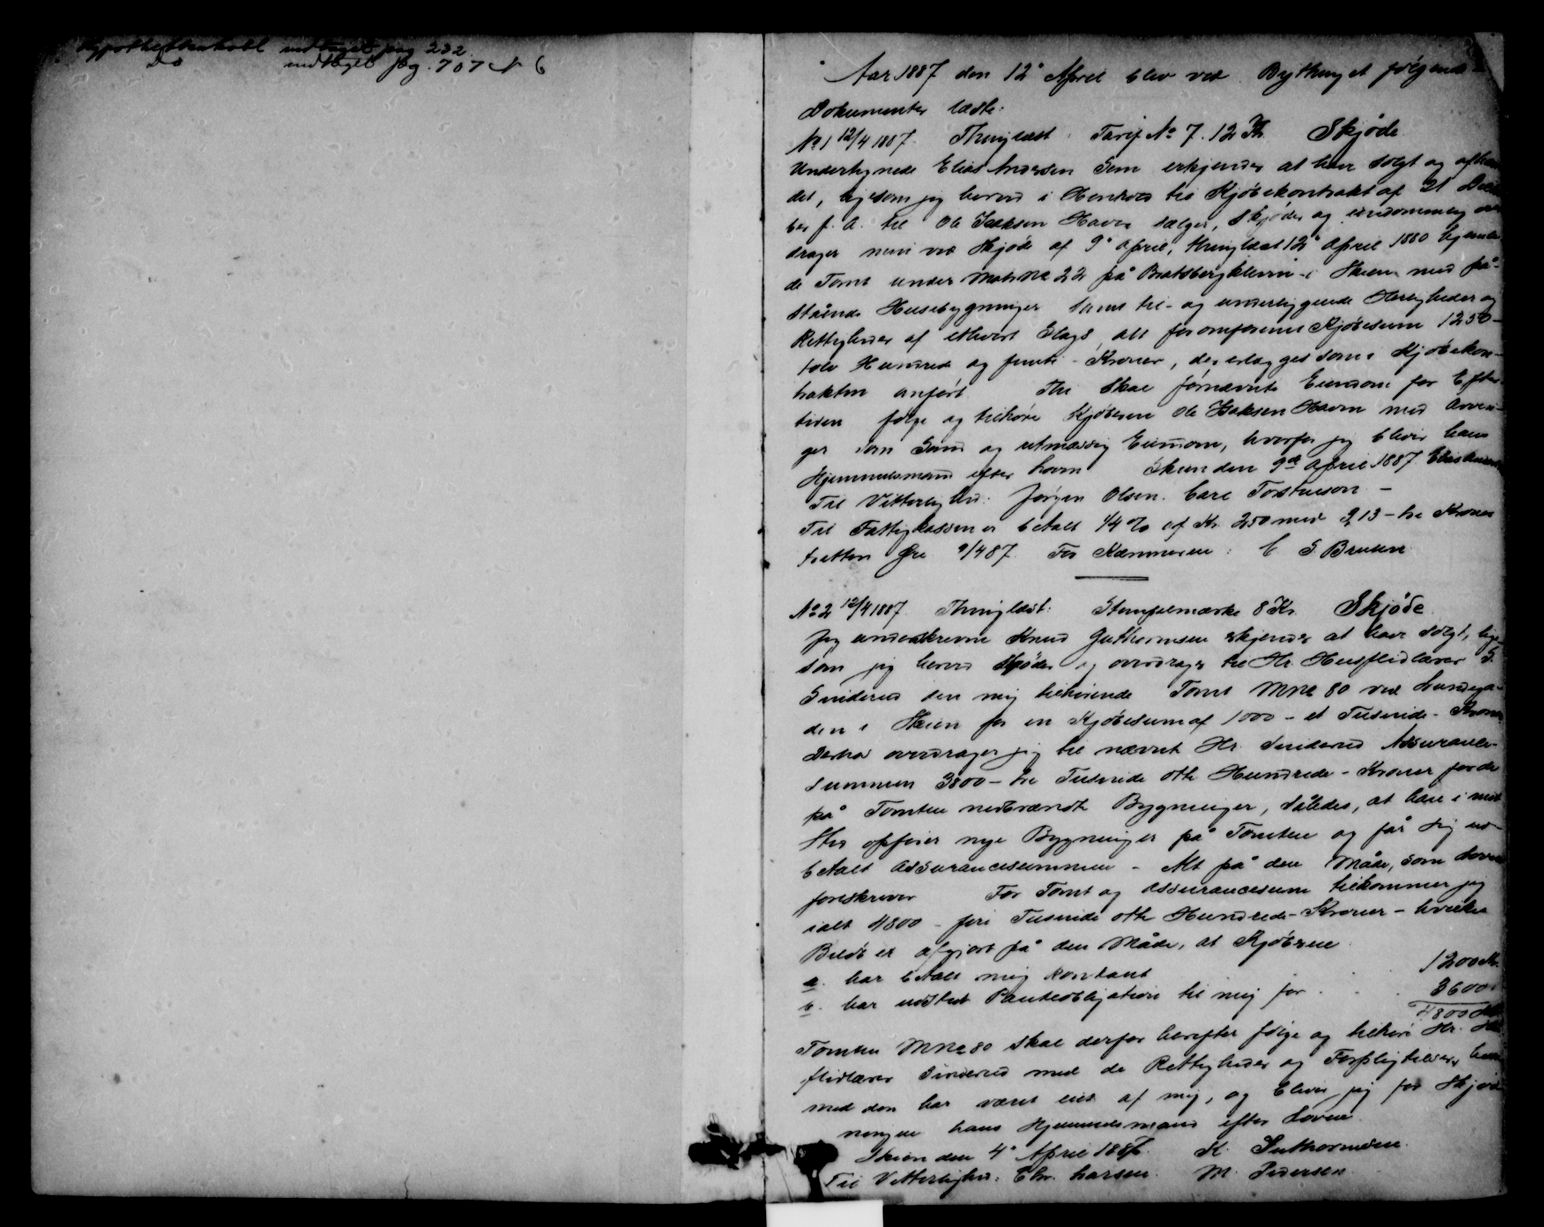 Hypothekenhold indtaget pag 232.
Do indtaget pag. 707 № 6
Aar 1887 den 12te April blev ved Bything et følgende
Dokumenter læste:
№ 1 12/4 1887. Thinglæst. Tarif № 7. 12 Kr. Skjøde
Undertegnede Elias Andersen Sem erkjender at have solgt og afhæn
det, ligesom jeg herved i Henhold til Kjøbekontrakt af 21 Decem
ber f. A. til Ole Isaksen Havn sælger, skjøder og eiendommelig over
drager min ved Skjøde af 9de April, thinglæst 12te April 1880 hjemle
de Tomt under Matr № 22 på Bratsbergkleven i Skien med på-
stående Husebygninger samt til- og underliggende Herligheder og
Rettigheder af ethvert Slags, alt for omforenet Kjøbesum 1250 -
tolv Hundrede og femti - Kroner, der erlægges som i Kjøbekon-
trakten anført. Thi skal førnævnte Eiendom for Efter
tiden følge og tilhøre Kjøberen Ole Isaksen Havn med Arvin-
ger som Sand og retmæssig Eiendom, hvorfor jeg bliver hans
Hjemmelsmand efter Loven Skien den 9de April 1887 Elias Andersen
Til Vitterlighed: Jørgen Olsen. Carl Torstenson -
Til Fattigkassen er betalt 1/4 % af Kr 250 med 2,13 - to Kroner
tretten Øre 9/4 87. For Kæmneren: C G Bruun
№ 2 12/4 1887. Thinglæst. Stempelmærke 8 Kr. Skjøde
Jeg underskrevne Knud Guthormsen erkjender at have solgt, lige
som jeg herved skjøder og overdrager til Hr. Husflidlærer S.
Sinderud den mig tilhørende Tomt M№ 80 ved Lundega-
den i Skien for en Kjøbesum af 1000 - et Tusinde - Kroner
Derhos overdrager jeg til nævnte Hr. Sinderud Assurance-
summen 3800 - tre Tusinde otte Hundrede - Kroner for de
på Tomten nedbrændte Bygninger, således, at han i mit
Sted opfører nye Bygninger på Tomten og får sig ud-
betalt Assurancesummen - Alt på den Måde, som Loven
foreskriver For Tomt og Assurancesum tilkommer jeg
ialt 4800 - fire Tusinde otte Hundrede - Kroner - hvilke
Beløb er afgjort på den Måde, at Kjøberen
a. har betalt mig kontant 1200 Kr.
b. har udstedt Panteobligation til mig for . . . 3600 "
4800 Kr.
Tomten M№ 80 skal derfor herefter følge og tilhøre Hr. Hus
flidlærer Sinderud med de Rettigheder og Forpligtelser, hvor
med den har været eiet af mig, og bliver jeg for Skjød
ningen hans Hjemmelsmand efter Loven.
Skien den 4de April 1887. K. Guthormsen.
Til Vitterlighed: Chr. Larsen. M. Pedersen